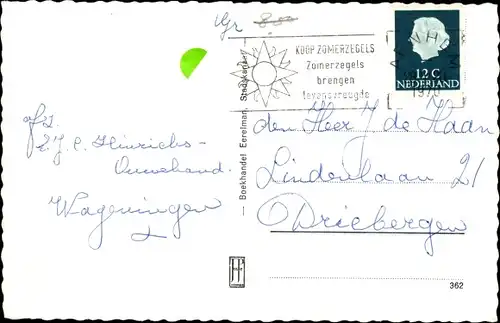 Vgr 8.50
KOOP ZOMERZEGELS
Zomerzegels
brengen
levensvreugde
ARNHEM
1970
12 C
NEDERLAND
afz.
Z.J.C. Heinrichs-
Ouwehand.
Wageningen
Boekhandel Eerelman, Stadskanaal
den Heer J de Haan
Lindenlaan 21
Driebergen
362